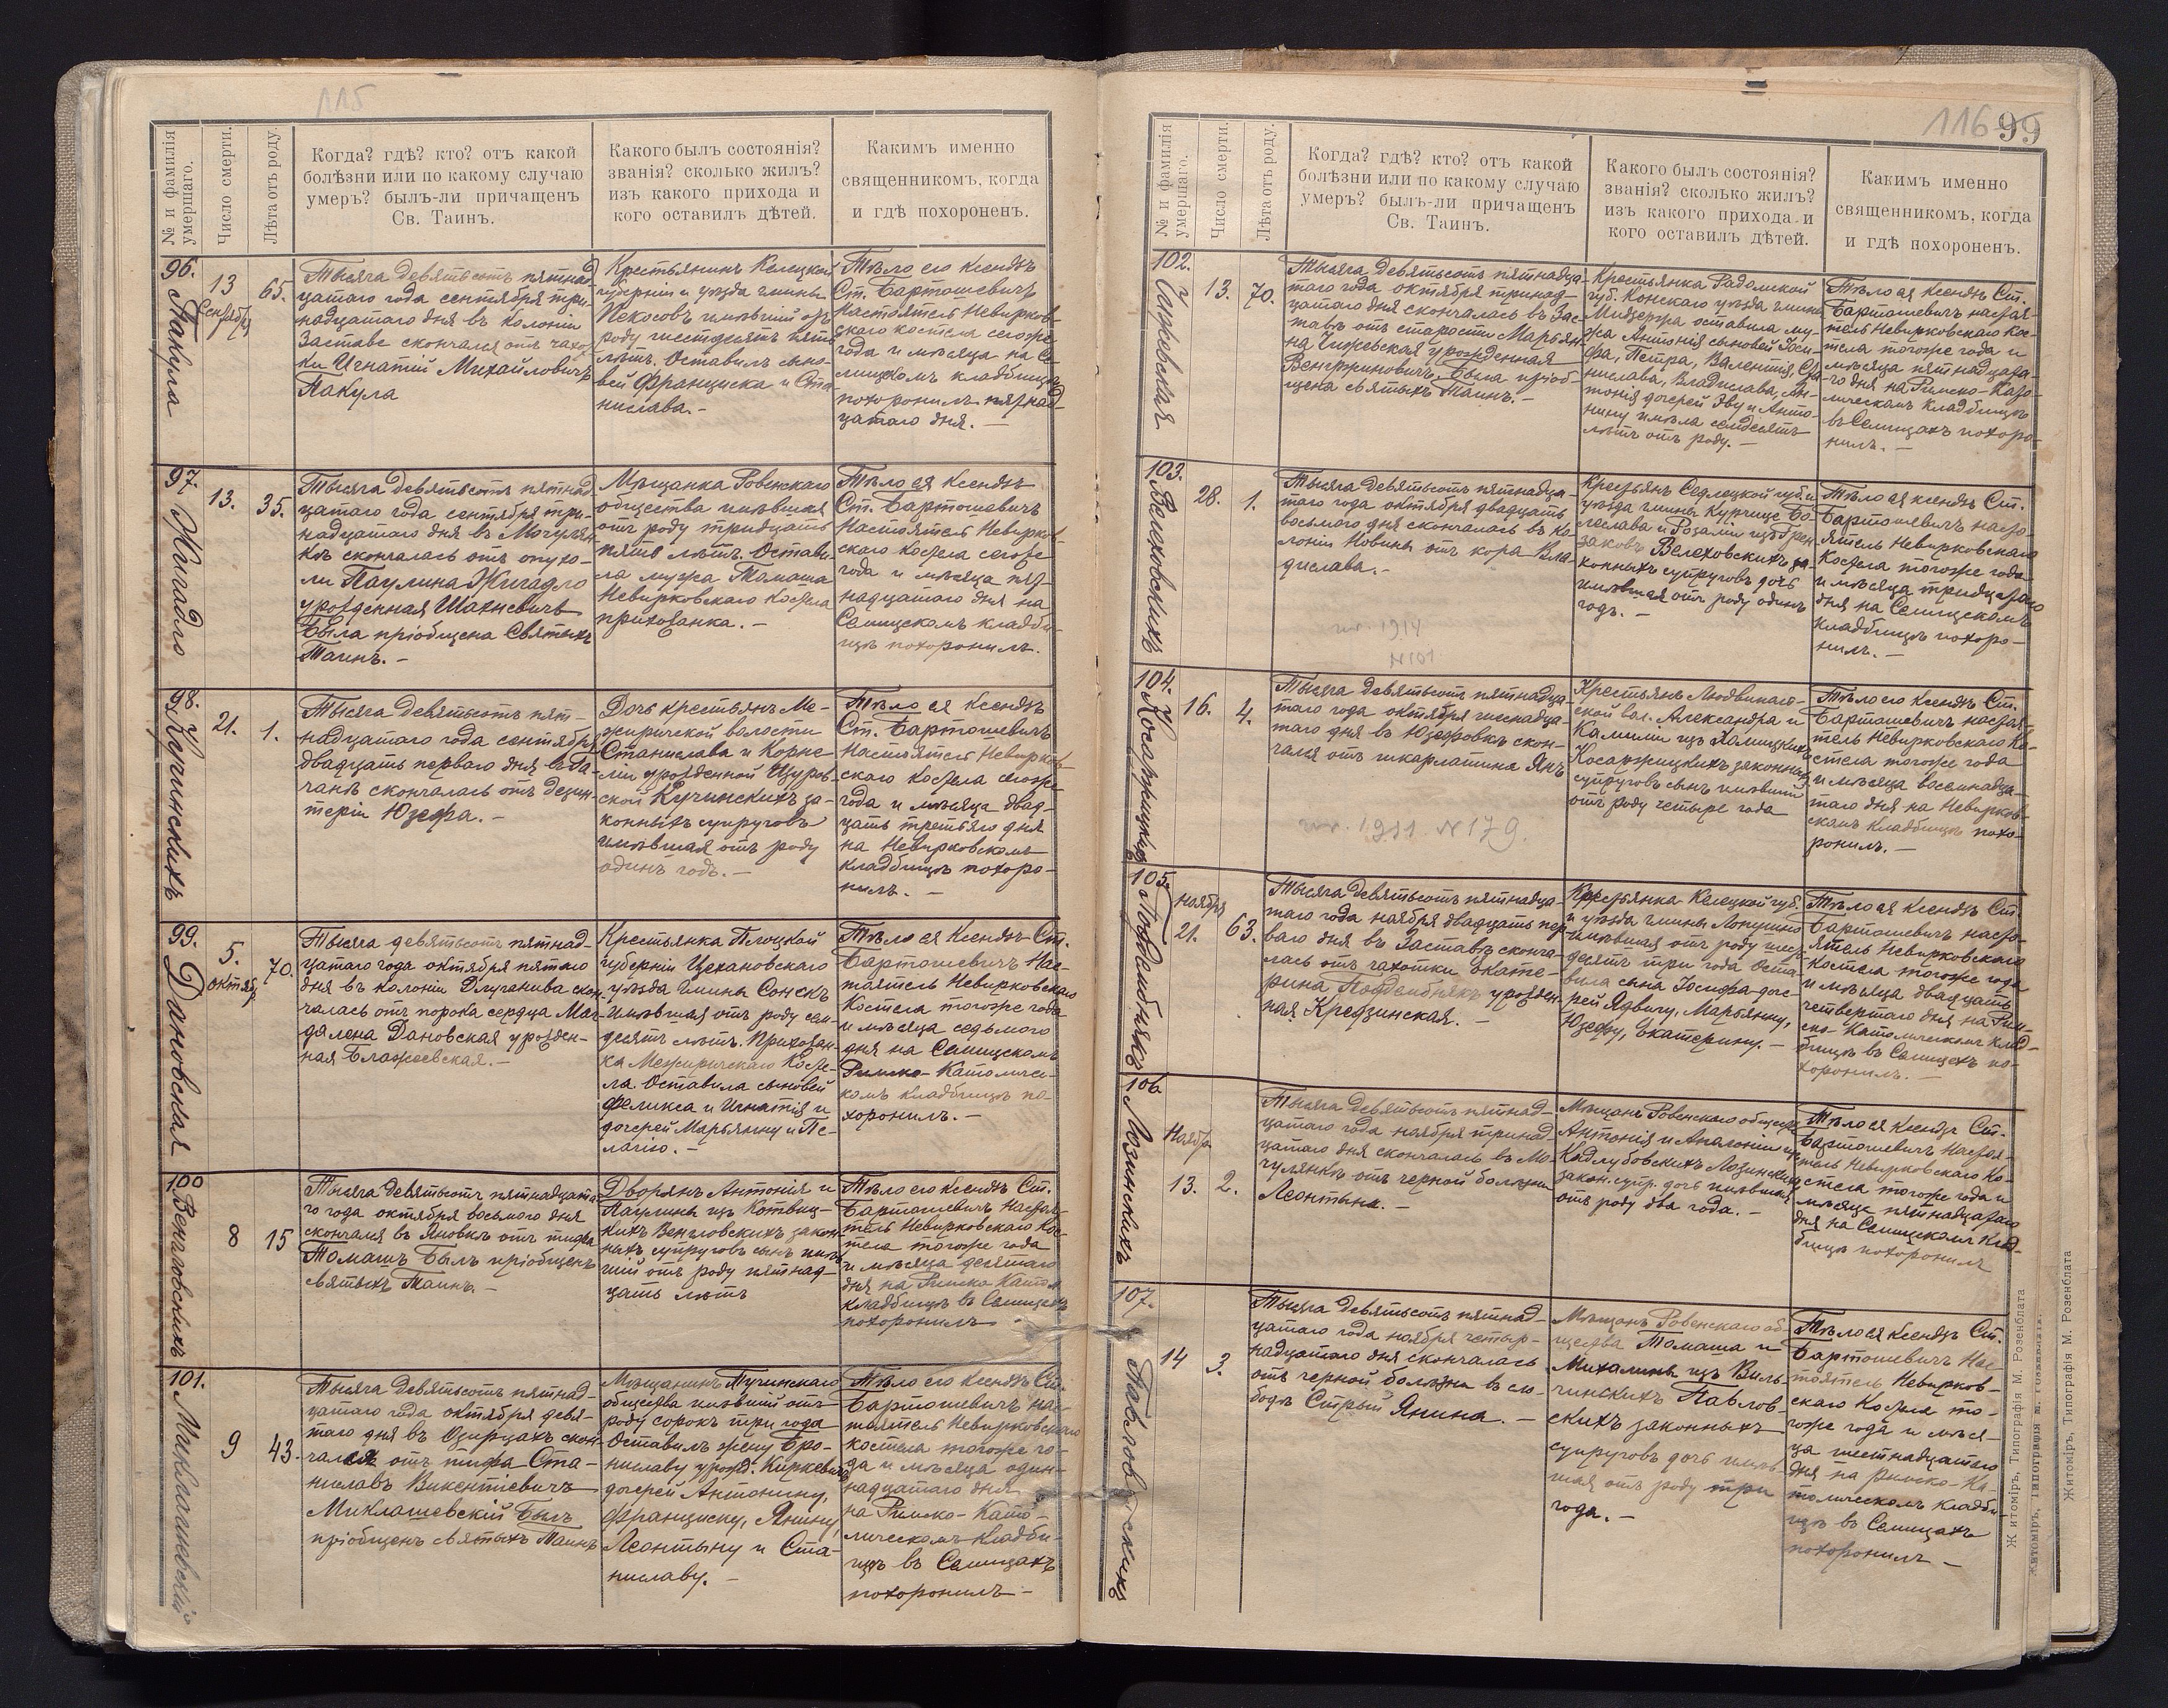 115
№ и фамилія умершаго.
Число смерти.
Лѣта отъ роду.
Когда? гдѣ? кто? отъ какой
болѣзни или по какому случаю
умеръ? былъ-ли причащенъ
Св. Таинъ.
Какого былъ состоянія?
званія? сколько жилъ?
изъ какого прихода и
кого оставилъ дѣтей.
Какимъ именно
священникомъ, когда
и гдѣ похороненъ.
96. Пакула
13 Сентября
65.
Тысяча девятьсотъ пятнад
цатаго года сентября три
надцатаго дня въ колоніи
Заставе скончался отъ чахот
ки Игнатій Михайловичъ
Пакула
Крестьянинъ Келецкой
губерніи и уѣзда гмины
Пекосовъ имѣвшій отъ
роду шестдесятъ пять
лѣтъ. Оставилъ сыно
вей Франциска и Ста
нислава. –
Тѣло его Ксендзъ
Ст. Бартошевичъ
настоятель Невирков
скаго костела сегоже
года и мѣсяца на Се
лищскомъ кладбищѣ
похоронилъ пятнад
цатаго дня. –
97. Жигадло
13.
35.
Тысяча девятьсотъ пятнад
цатаго года сентября три
надцатаго дня въ Мочулян
кѣ скончалась отъ опухо
ли Паулина Жигадло
урожденная Шахневичъ
Была пріобщена Святыхъ
Таинъ. –
Мѣщанка Ровенскаго
общества имѣвшая
отъ роду тридцать
пять лѣтъ. Остави
ла мужа Томаша
Невирковскаго костела
прихожанка. –
Тѣло ея Ксендзъ
Ст. Бартошевичъ
Настоятель Невирков
скаго костела сегоже
года и мѣсяца пят
надцатаго дня на
Селищскомъ кладби
щѣ похоронилъ.
98. Кучинскихъ
21.
1.
Тысяча девятьсотъ пят –
надцатаго года сентября
двадцать перваго дня въ
чанѣ скончалась отъ дезин
теріи Юзефа. –
Дочь крестьянъ Ме –
жиричской волости
Станислава и Корне
ліи урожденной
ской Кучинскихъ за –
конныхъ супруговъ
имѣвшая отъ роду
одинъ годъ. –
Тѣло ея Ксендзъ
Ст. Бартошевичъ
Настоятель Невирков
скаго костела сегоже
года и мѣсяца двад –
цать третьяго дня
на Невирковскомъ
кладбищѣ похоро –
нилъ. –
99. Дановская
5. октябр
70.
Тысяча девятьсотъ пятнад –
цатаго года октября пятаго
дня въ колоніи скон
чалась отъ порока сердца Маг
далена Дановская урожден –
ная Блажеевская. –
Крестьянка Плоцкой
губерніи Цехановскаго
уѣзда гмины Сонскъ
имѣвшая отъ роду сем
десятъ лѣтъ. Прихожан –
ка Межиричскаго Косте –
ла Оставила сыновей
Феликса и Игнатія и
дочерей Марьянну и Пе –
лагію. –
Тѣло ея Ксендзъ Ст.
Бартошевичъ Нас –
тоятель Невирковскаго
Костела тогоже года
и мѣсяца седьмого
дня на Селищскомъ
Римско-Католичес –
комъ кладбищѣ по
хоронилъ. –
100 Венгловскихъ
8
15
Тысяча девятьсотъ пятнадцата
го года октября восьмого дня
скончался въ Яновкѣ отъ тифа
Томашъ Былъ пріобщенъ
святыхъ Таинъ. –
Дворянъ Антонія и
Паулины изъ Котвиц –
кихъ Венгловскихъ закон
ныхъ супруговъ сынъ имѣв
шій отъ роду пятнад –
цать лѣтъ
Тѣло его Ксендзъ Ст.
Бартошевичъ Настоя –
тель Невирковскаго Кос –
тела тогоже года
и мѣсяца десятаго
дня на Римско Катол
кладбищѣ въ Селищахъ
похоронилъ
101. Миклашевскій
9
43.
Тысяча девятьсотъ пятнад –
цатаго года октября девя –
таго дня въ Озирцахъ скон
чался отъ тифа Ста –
ниславъ Викентіевичъ
Миклашевскій Былъ
пріобщенъ святыхъ Таинъ
Мѣщанинъ Тучинскаго
общества имѣвшій отъ
роду сорокъ три года
Оставилъ жену Бро –
ниславу урожд. Киркевичъ
дочерей Антонину,
Франциску, Янину,
Леонтыну и Ста –
ниславу. –
Тѣло его Ксендзъ Ст.
Бартошевичъ на –
тоятель Невирковскаго
костела тогоже го –
да и мѣсяца один –
надцатаго дня
на Римско-Като –
лическомъ кладби –
щѣ въ Селищахъ
похоронилъ –
116 99
№ и фамилія умершаго.
Число смерти.
Лѣта отъ роду.
Когда? гдѣ? кто? отъ какой
болѣзни или по какому случаю
умеръ? былъ-ли причащенъ
Св. Таинъ.
Какого былъ состоянія?
званія? сколько жилъ?
изъ какого прихода и
кого оставилъ дѣтей.
Какимъ именно
священникомъ, когда
и гдѣ похороненъ.
102. Чижевская
13.
70.
Тысяча девятьсотъ пятнадца –
таго года октября тринад –
цатаго дня скончалась въ Зас –
тавѣ отъ старости Марьян
на Чижевская урожденная
Венгржиновичъ. Была пріоб –
щена святыхъ Таинъ. –
Крестьянка Радомской
губ. Конскаго уѣзда гмины
оставила му –
жа Антонія сыновей Іоси –
фа, Петра, Валентія, Ста
нислава, Владислава, Ан –
тонія дочерей Эву и Анто –
нину имѣла семдесятъ
лѣтъ отъ роду. –
Тѣло ея Ксендзъ Ст.
Бартошевичъ настоя –
тель Невирковскаго Кос –
тела тогоже года и
мѣсяца пятнадцата –
го дня на Римско-Като –
лическомъ кладбищѣ
въ Селищахъ похоро –
нилъ. –
103. Велеховскихъ
28.
1.
Тысяча девятьсотъ пятнадца –
таго года октября двадцать
восьмого дня скончалась въ Ко –
лоніи Новины отъ кора Вла –
дислава. –
ur. 1914
N 101
Крестьянъ Седлецкой губ. и
уѣзда гмины Бо –
леслава и Розаліи изъ
Велеховскихъ за –
конныхъ супруговъ дочь
имѣвшая отъ роду одинъ
годъ. –
Тѣло ея ксендзъ Ст.
Бартошевичъ насто –
ятель Невирковскаго
Костела тогоже года
и мѣсяца тридцатаго
дня на Селищскомъ
кладбищѣ похоро –
нилъ. –
104. Косаржицкихъ
16.
4.
Тысяча девятьсотъ пятнадца –
таго года октября шеснадца –
таго дня въ Юзефовкѣ скон –
чался отъ шкарлатина Янъ
ur. 1911 N 179.
Крестьянъ
ской вол. Александра и
Камили изъ
Косаржицкихъ законныхъ
супруговъ сынъ имѣвшій
отъ роду четыре года
Тѣло его Ксендзъ Ст.
Бартошевичъ настоя –
тель Невирковскаго Ко –
стела тогоже года
и мѣсяца восемнадца –
таго дня на Невирков –
скомъ кладбищѣ похо –
ронилъ. –
105. Поддембнякъ
ноября
21.
63.
Тысяча девятьсотъ пятнадца –
таго года ноября двадцать пер
ваго дня въ Заставѣ сконча –
лась отъ чахотки Екате –
рина Поддембнякъ урожден –
ная Кредзинская. –
Крестьянка Келецкой губ.
и уѣзда гмины Лопушно
имѣвшая отъ роду шес
десятъ три года Оста
вила сына Іосифа доче –
рей Ядвигу, Марьянну,
Юзефу, Екатерину. –
Тѣло ея Ксендзъ Ст.
Бартошевичъ насто –
ятель Невирковскаго
Костела тогоже года
и мѣсяца двадцать
четвертаго дня на Рим –
ско-Католическомъ клад –
бищѣ въ Селищахъ по –
хоронилъ. –
106 Лозинскихъ
Ноября
13.
2.
Тысяча девятьсотъ пятнад –
цатаго года ноября тринад –
цатаго дня скончалась въ Мо –
чулянкѣ отъ черной болѣзни
Леонтына. –
Мѣщанъ Ровенскаго общества
Антонія и Аполоніи изъ
Кадлубовскихъ Лозинскихъ
закон. супр. дочь имѣвшая
отъ роду два года. –
Тѣло ея Ксендзъ Ст.
Бартошевичъ Настоя –
тель Невирковскаго Ко –
стела тогоже года и
мѣсяца пятнадцатаго
дня на Селищскомъ клад –
бищѣ похоронилъ
107. Павловскихъ
14
3.
Тысяча девятьсотъ пятнад –
цатаго года ноября четыр –
надцатаго дня скончалась
отъ черной болѣзни въ сло –
бодѣ Стрый Янина. –
Мѣщанъ Ровенскаго об –
щества Томаша и
Михалины изъ Виль
чинскихъ Павлов
скихъ законныхъ
супруговъ дочь имѣв –
шая отъ роду три
года. –
Тѣло ея Ксендзъ Ст.
Бартошевичъ Нас –
тоятель Невирков –
скаго Костела то –
гоже года и мѣся –
ца шестнадцатаго
дня на Римско-Ка –
толическомъ кладби
щѣ въ Селищахъ
похоронилъ –
Житоміръ, Типографія М. Розенблата
Житоміръ, Типографія М. Розенблата.
Житоміръ, Типографія М. Розенблата